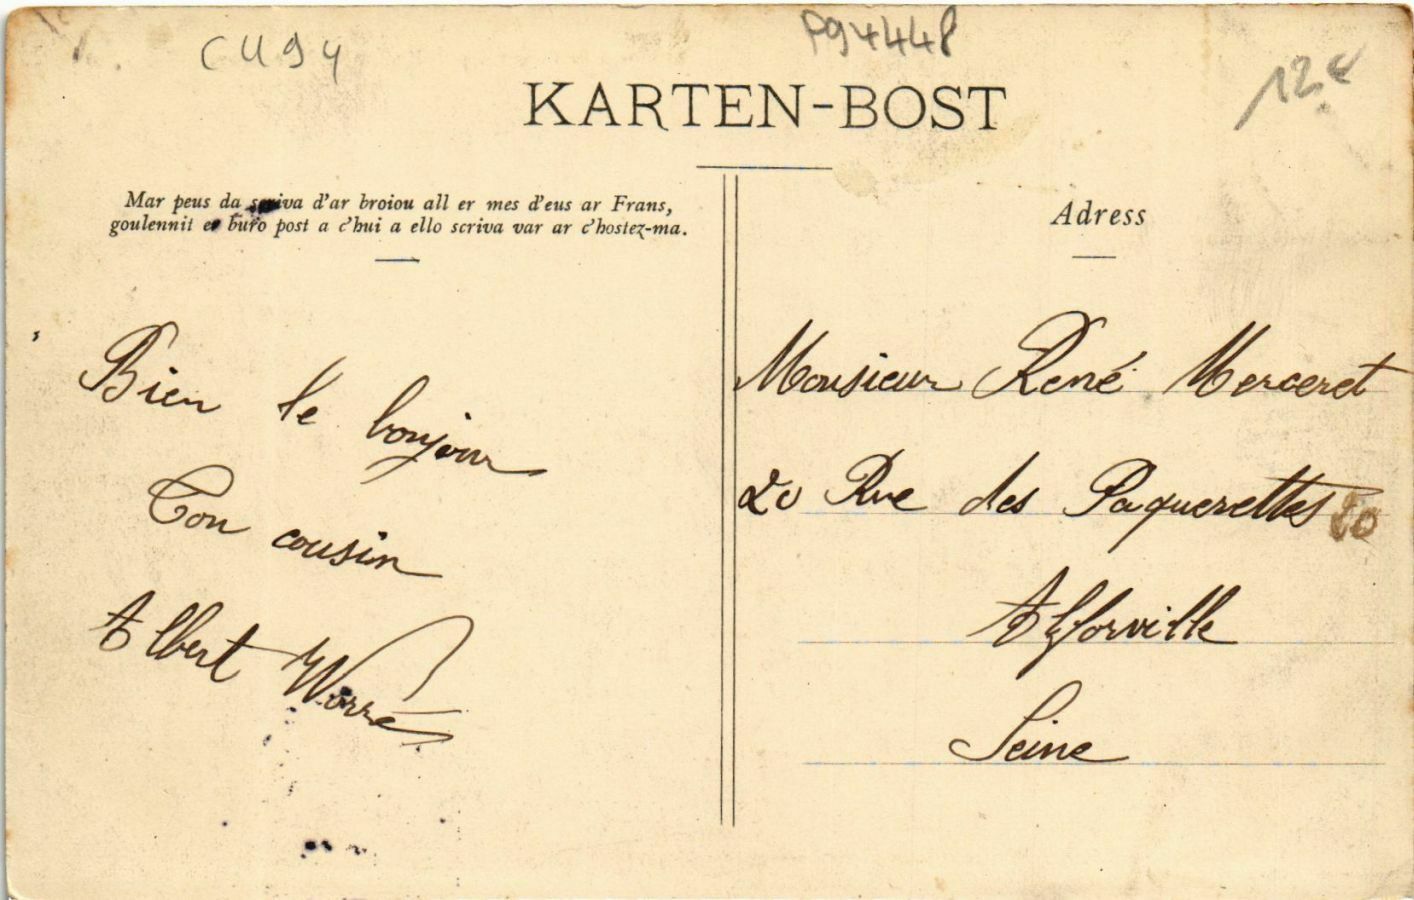 CU94
P94448
12 €
KARTEN-BOST
Mar peus da scriva d'ar broiou all er mes d'eus ar Frans,
goulennit er buro post a c'hui a ello scriva var ar c'hostez-ma.
Adress
Bien le bonjour
Ton cousin
Albert Worré
Monsieur René Merceret
20 Rue des Paquerettes 20
Alforville
Seine